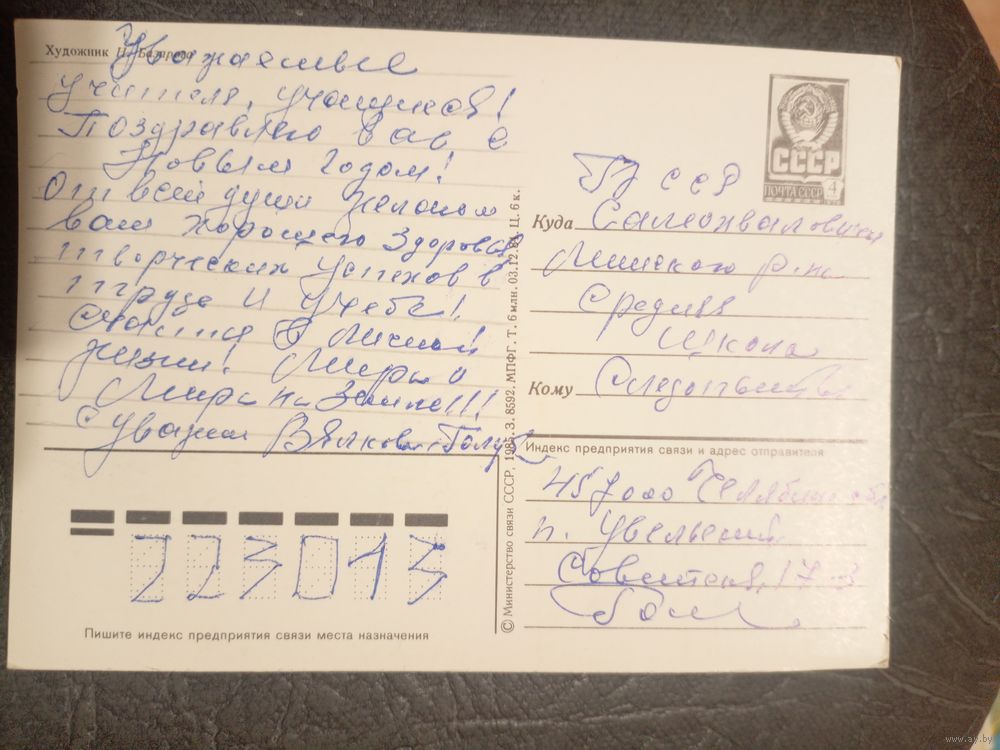 Художник И.
Уважаемые
учителя, учащиеся!
Поздравляю вас с
Новым годом!
От всей души желаем
вам хорошего здоровья
творческих успехов в
труде и учебе!
Счастья в личной
жизни! Мира и
Мира на Земле!!!
С уважен
СССР
ПОЧТА СССР 4
БССР
Куда Самохваловичская
Минского р-на
Средняя
Школа
Кому
Индекс предприятия связи и адрес отправителя
457000 Челябинс обл
п. Увельский
Советская, 17-3
223013
Пишите индекс предприятия связи места назначения
© Министерство связи СССР, 1985. З. 8592. МПФГ. Т. 6 млн. 03.12.84. Ц. 6 к.
www.ay.by